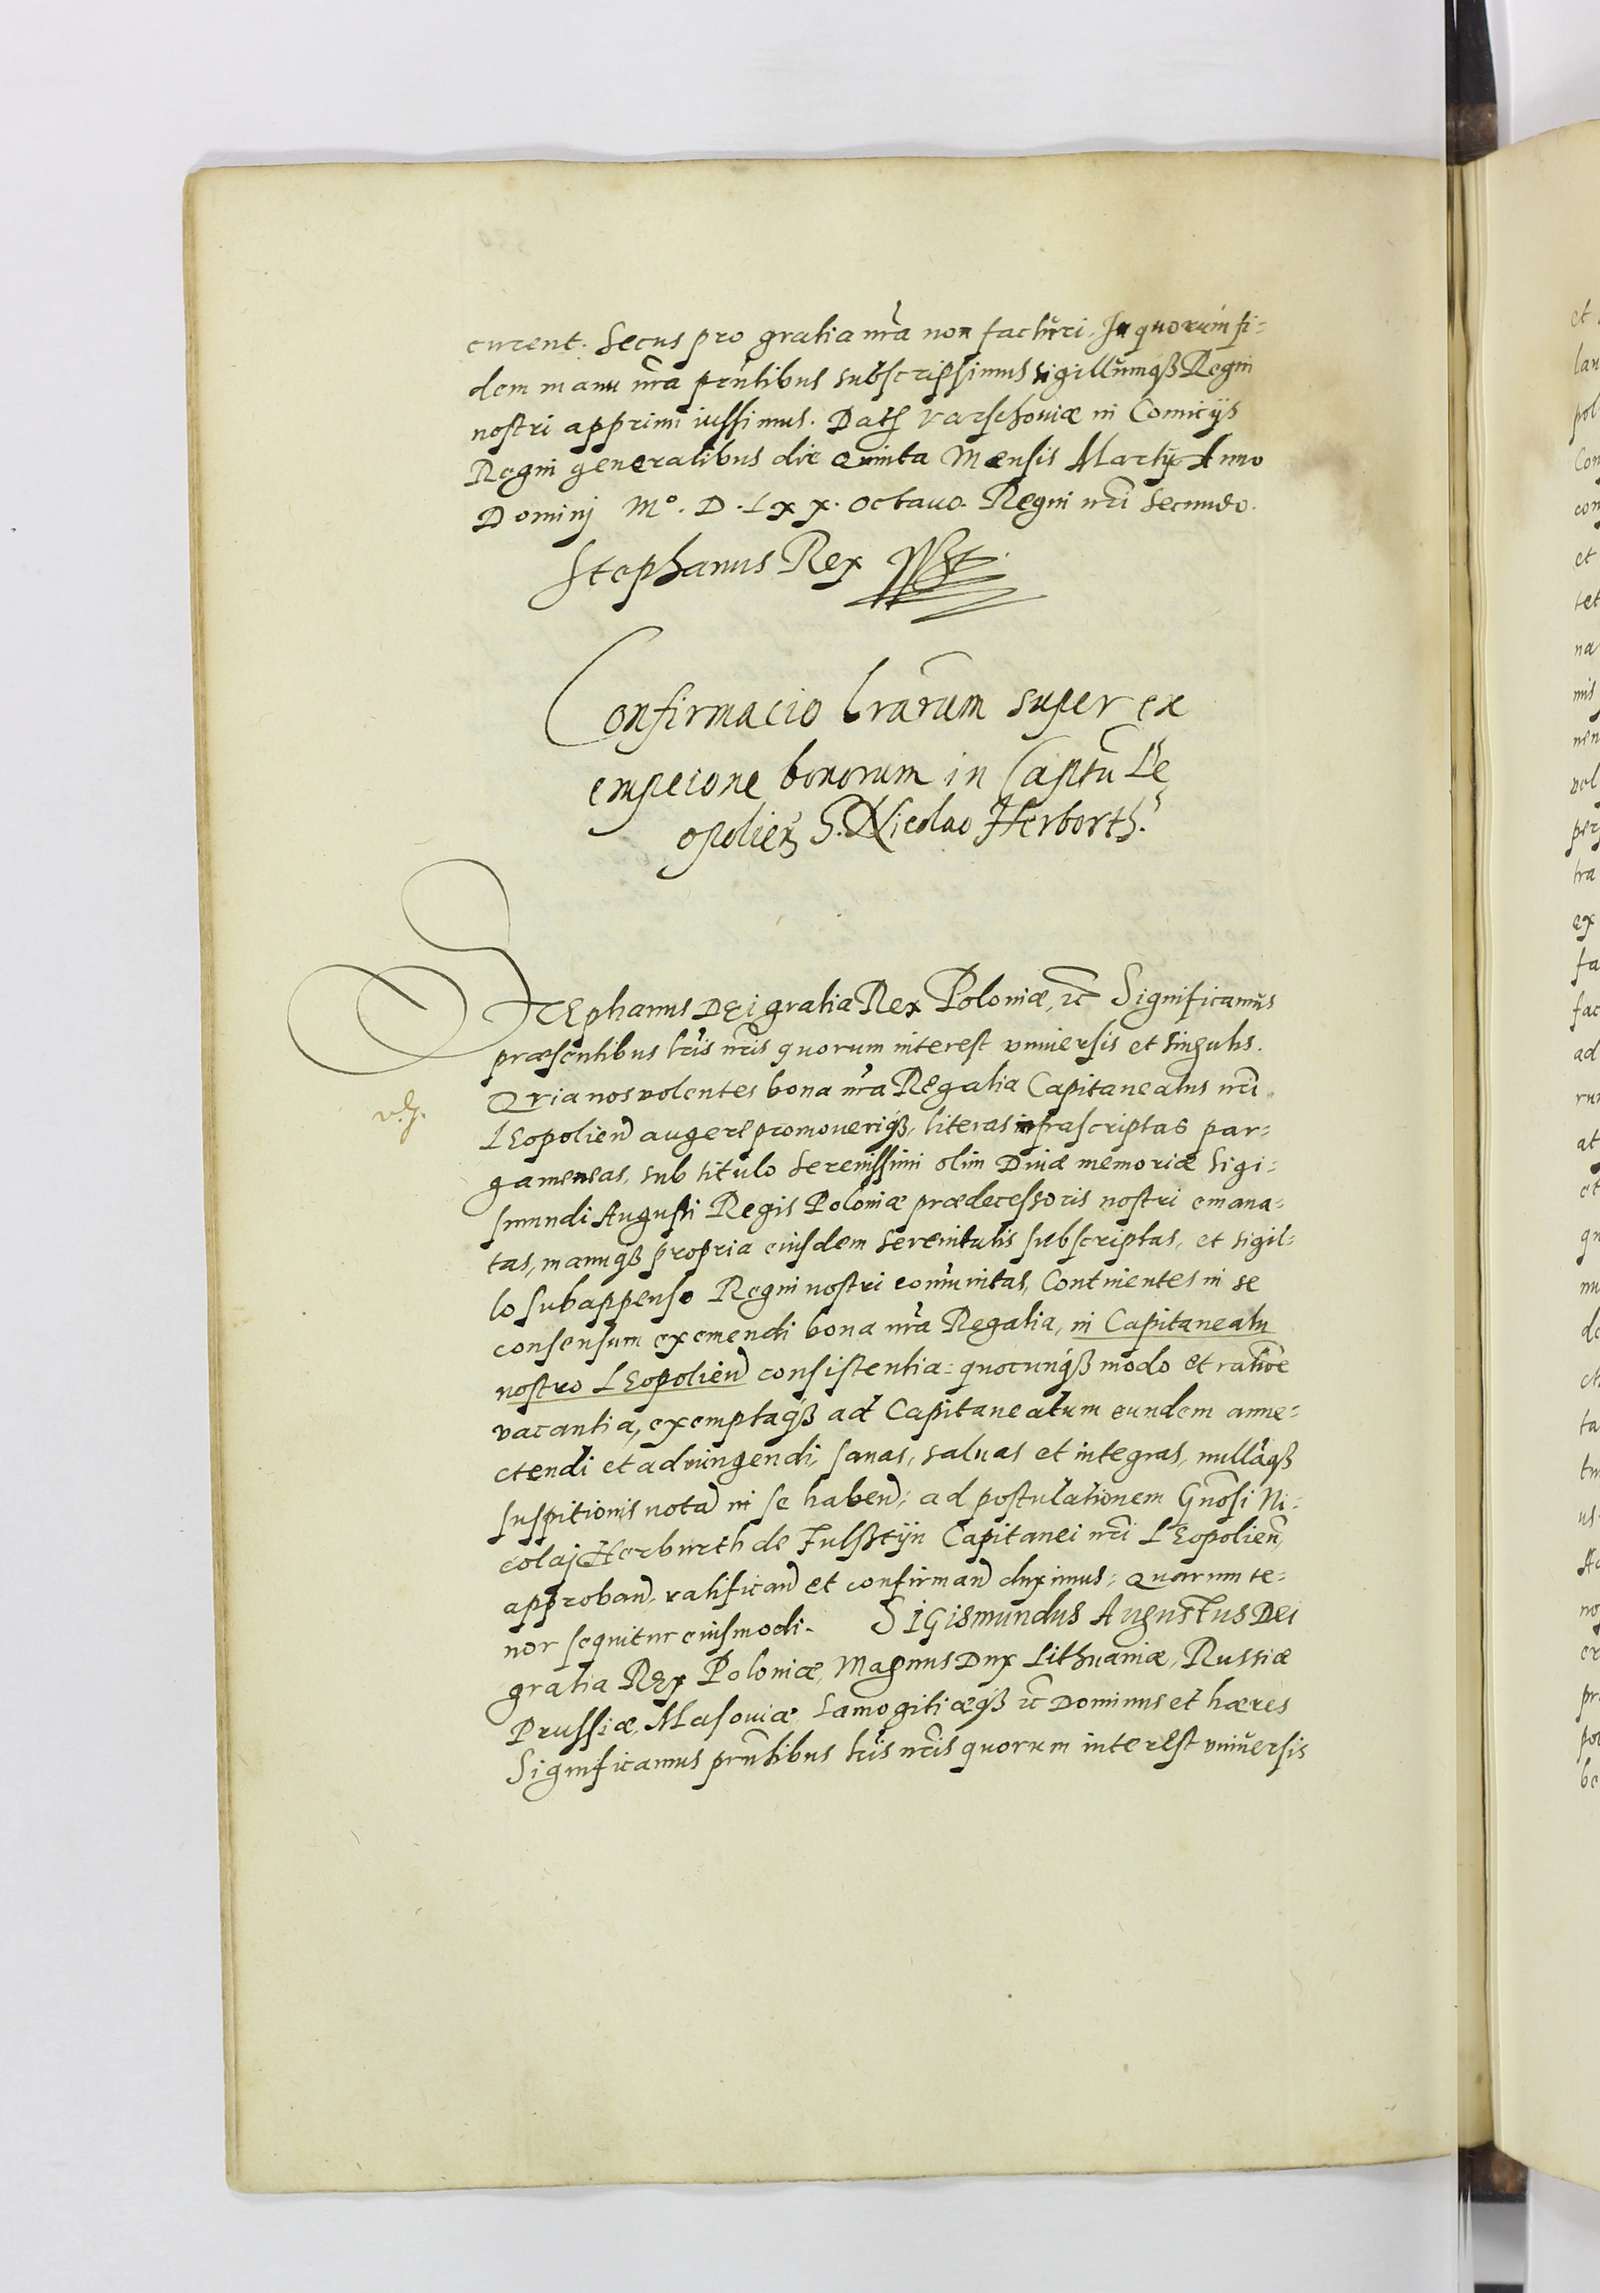 curent. Secus pro gratia nr̃a non facturi. In quorum fi=
dem manu nr̃a prñtibus subscripsimus sigillumqȝ Regni
nostri apprimi iussimus. Datȝ Varschoviæ in Comicijs
Regni generalibus die Quinta Mensis Martij Anno
Dominj Mº. D. Lxx. octauo. Regni nr̃i Secundo.
Stephanus Rex
Confirmacio lr̃arum super ex
empcione bonorum in Captũ Le
opolieñ G. Nicolao Herborth.
STEphanus DEi gratia Rex Poloniæ, ꝛc̃ Significamus
præsentibus lr̃is nr̃is quorum interest vniuersis et singulis.
Quia nos volentes bona nr̃a Regalia Capitaneatus nr̃i
LEopolieñ augere promoueriqȝ, literas infrascriptas par=
gameneas, sub titulo Serenissimi olim Diuæ memoriæ Sigi=
smundi Augusti Regis Poloniæ prædecessoris nostri emana=
tas, manuqȝ propria eiusdem Serenitatis subscriptas, et sigil=
lo subappenso Regni nostri com̃unitas, Continentes in se
consensum exemendi bona nr̃a Regalia, in Capitaneatu
nostro LEopolieñ consistentia: quocunqȝ modo et ratiõe
vacantia, exemptaqȝ ad Capitaneatum eundem anne=
ctendi et adiungendi, sanas, saluas et integras, nullaqȝ
suspitionis notã in se habeñ: ad postulationem Gnõsi Ni=
colaj Herburth de Fulsstijn Capitanei nr̃i LEopolieñ,
approbanđ, ratificanđ et confirmanđ duximus: Quarum te=
nor sequitur eiusmodi. SIGismundus AugusTus DEI
gratia REx Poloniæ, Magnus Dux Lithuaniæ, Russiæ
Prussiæ, Masouiæ, Samogitiæqȝ ꝛc̃ Dominus et hæres
Significamus prñtibus lr̃is nr̃is quorum interEst vniuersis